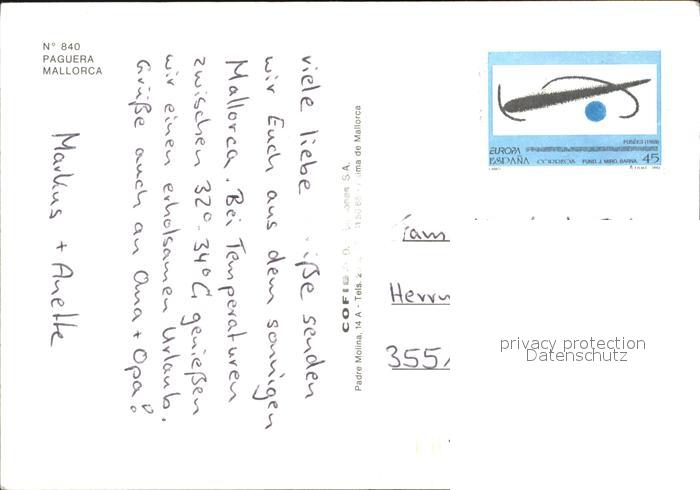 N° 840
PAGUERA
MALLORCA
viele liebe Grüße senden
wir Euch aus dem sonnigen
Mallorca. Bei Temperaturen
zwischen 32°-34°C genießen
wir einen erholsamen Urlaub.
Grüße auch an Oma + Opa!
Markus + Anette
COFIBA
Padre Molina, 14 A - Tels.
S.A.
de Mallorca
FUSÉES (1959)
EUROPA
ESPAÑA CORREOS FUND. J. MIRO. BARNA. 45
Fam
Herrn
355
privacy protection
Datenschutz